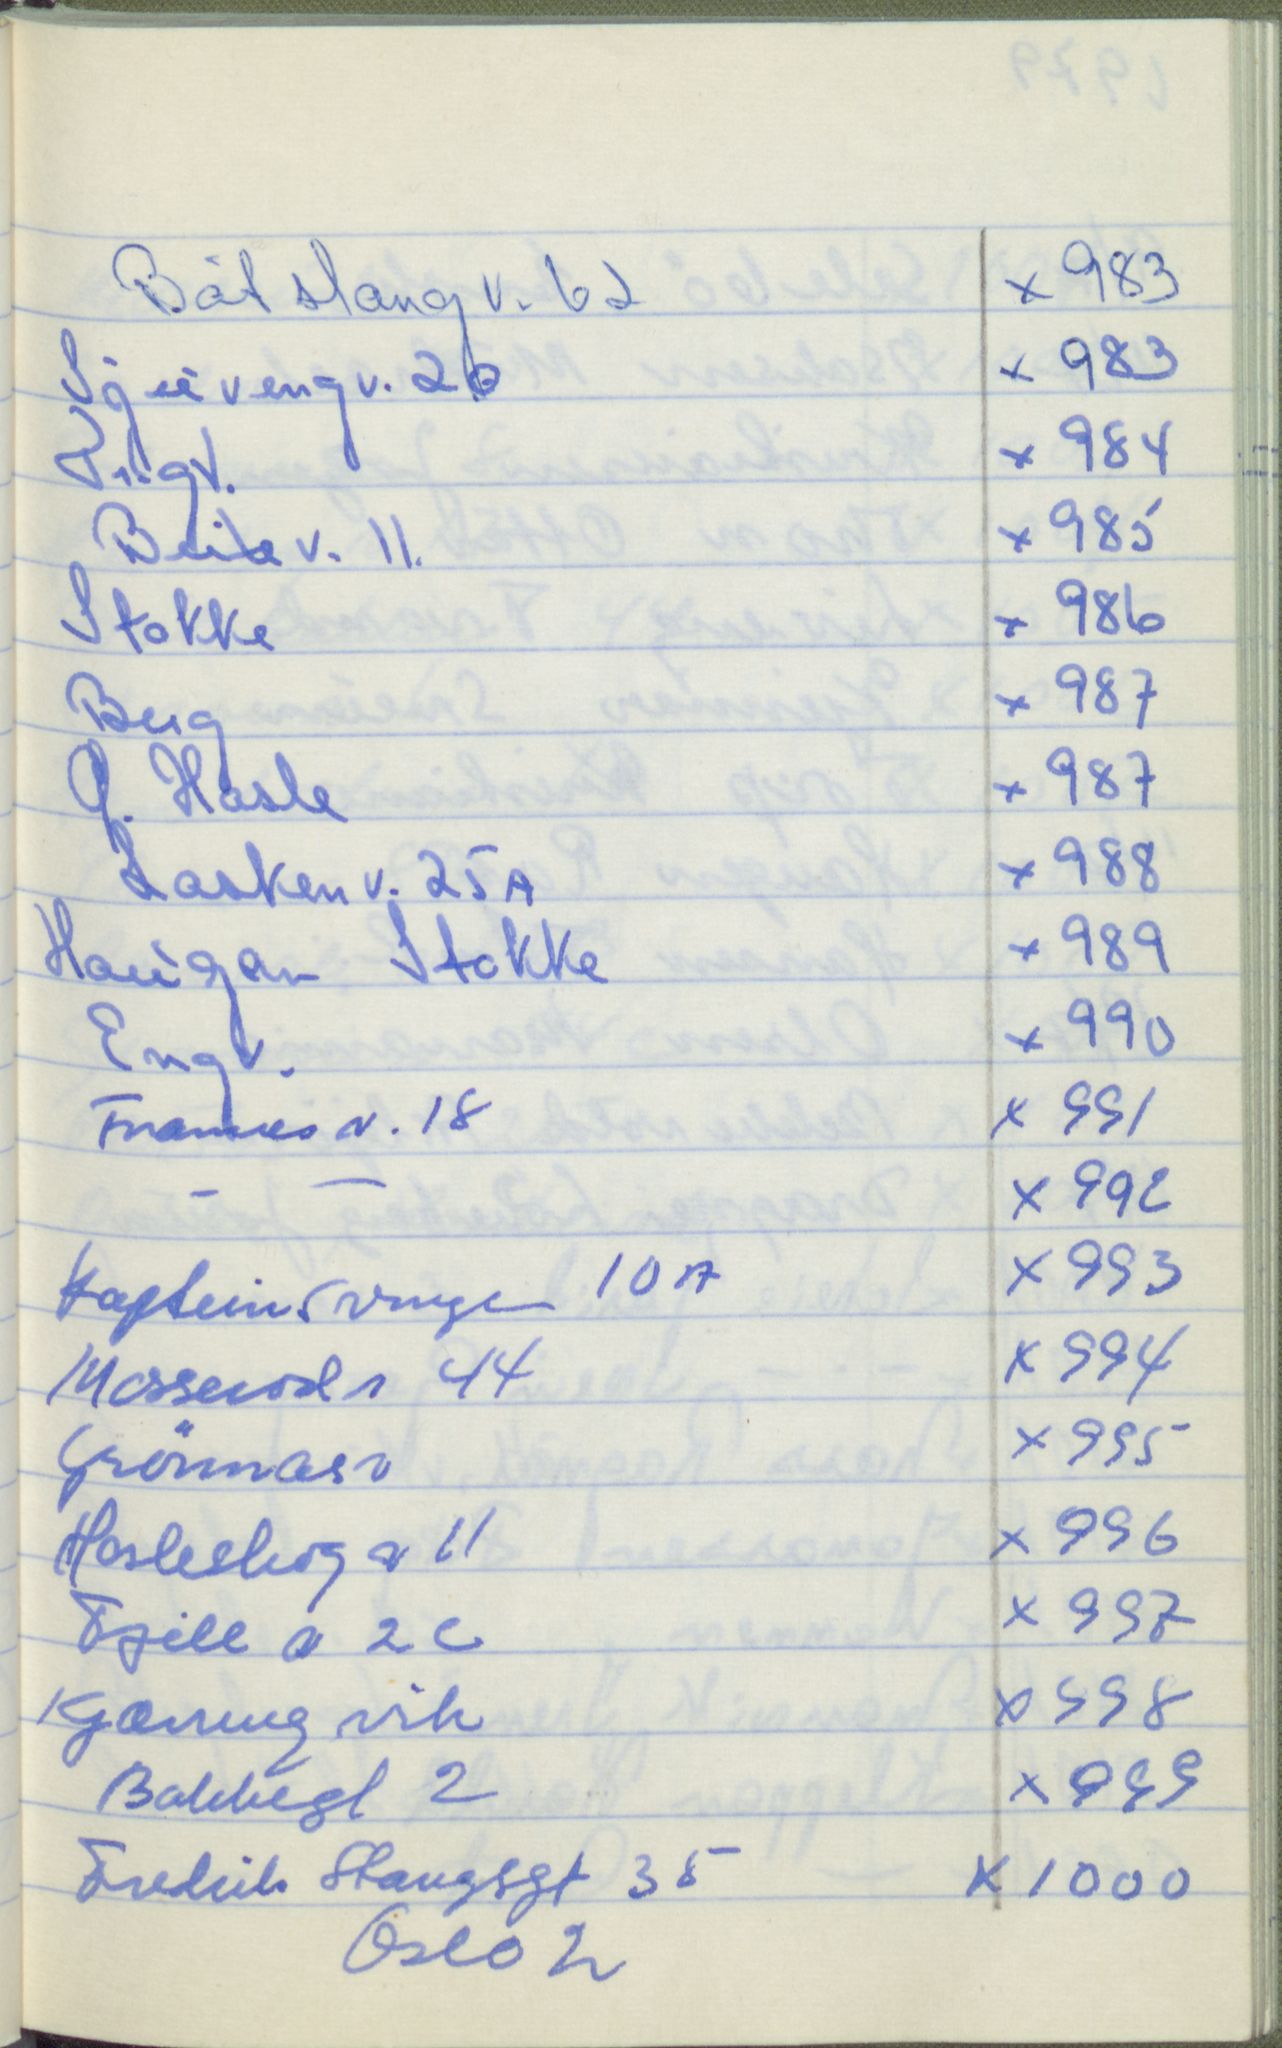 Båtstangv. 62 x 983
Sjøvengv. 20 x 983
Ringv. x 984
Beitev. 11. x 985
Stokke x 986
Berg x 987
G. Hasle x 987
Laskenv. 25A x 988
Haugan Stokke x 989
Engv. x 990
Framnesv. 18 x 991
— — x 992
Kapteinsvingen 10A x 993
Mosserodv 44 x 994
Grönnåsv x 995
Hasleskogv 11 x 996
Fjellv 2C x 997
Kjærringvik x 998
Bakkegt 2 x 999
Fredrik Stangsgt 35 x 1000
Oslo 2